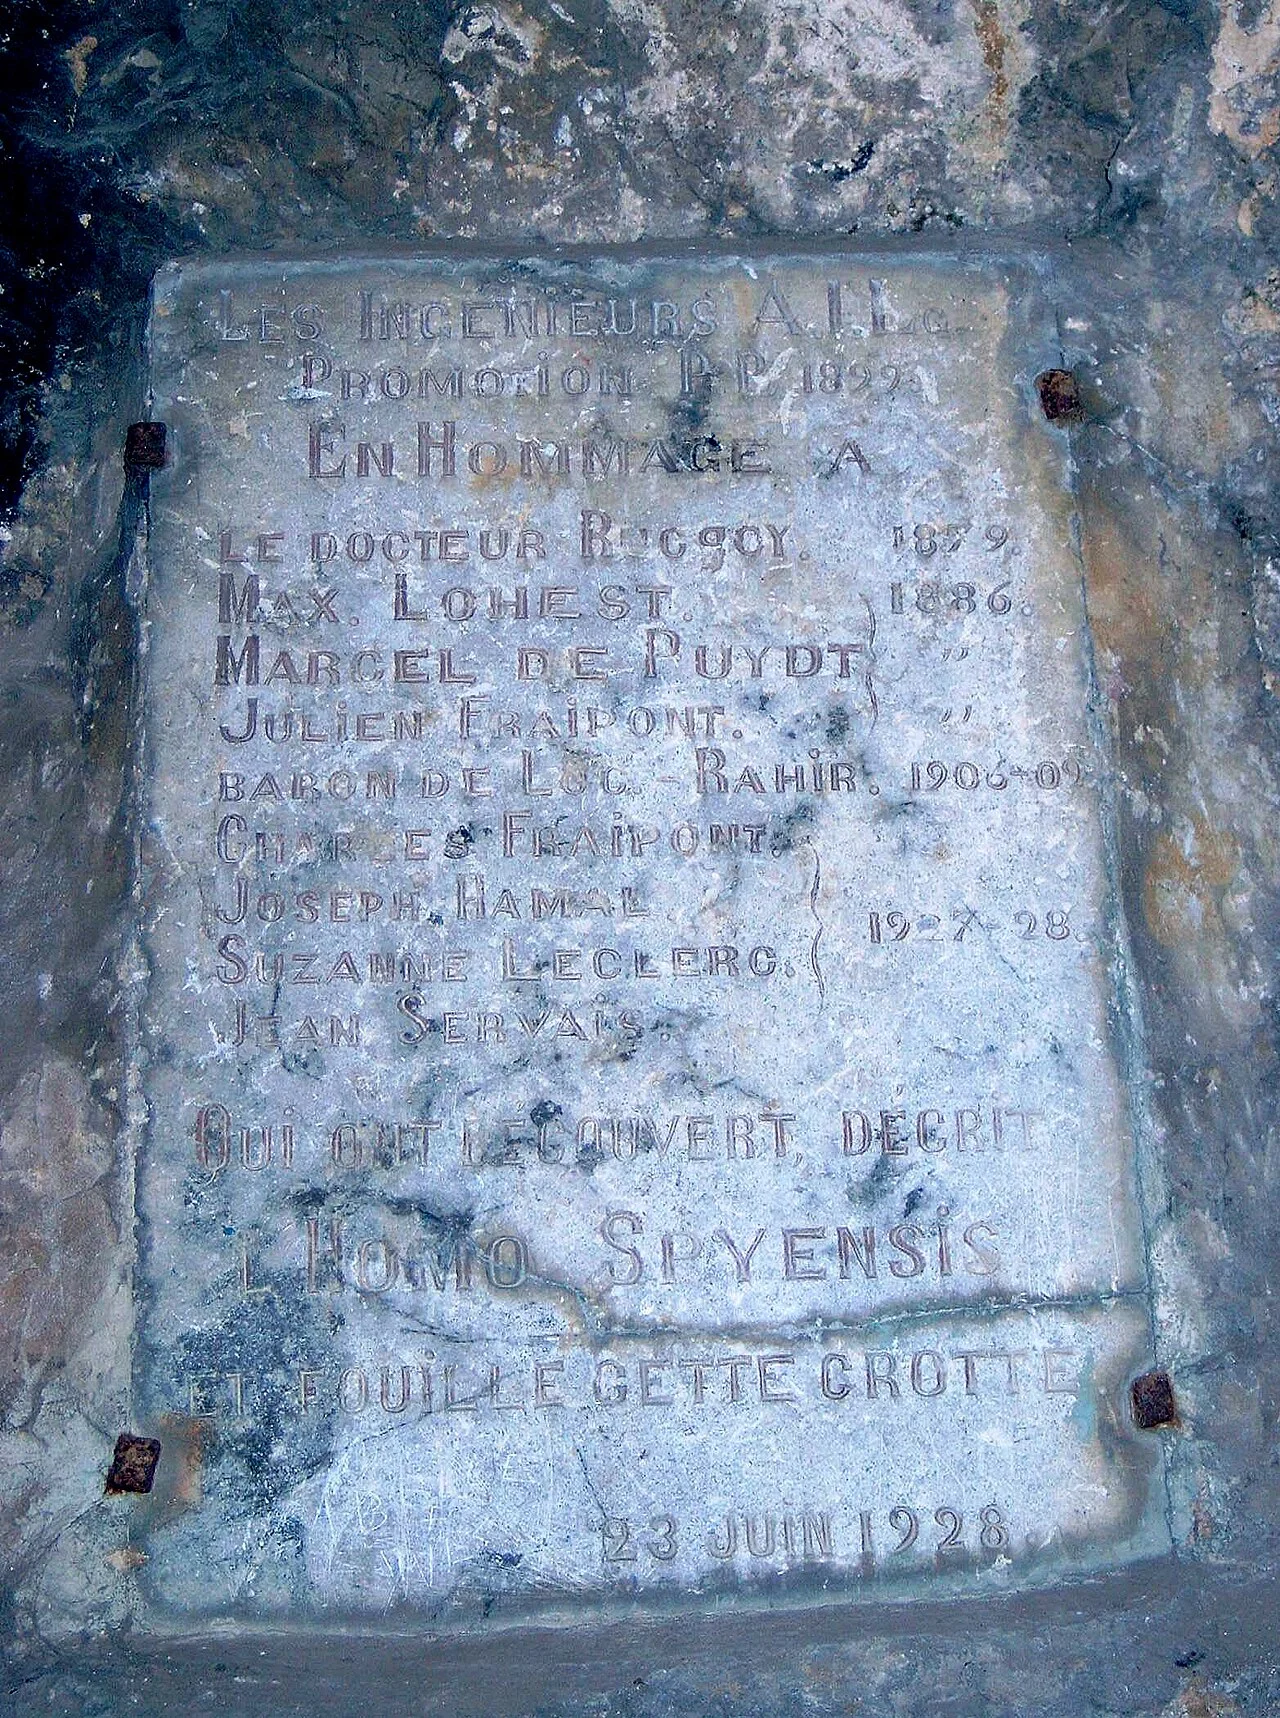 Les Ingenieurs A.I.Lg
Promotion P.P. 1899.
En Hommage a
le docteur Rucqoy. 1879.
Max. Lohest. 1886.
Marcel de Puydt "
Julien Fraipont. "
baron de Loë. - Rahir. 1906-09
Charles Fraipont.
Joseph Hamal
Suzanne Leclerc. 1927-28.
Jean Servais.
Qui ont découvert, décrit
l'Homo Spyensis
et fouillé cette grotte
23 juin 1928.